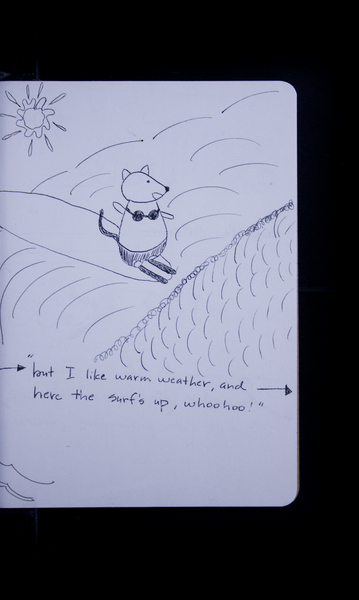 "but I like warm weather, and
here the surf's up, whoohoo!"